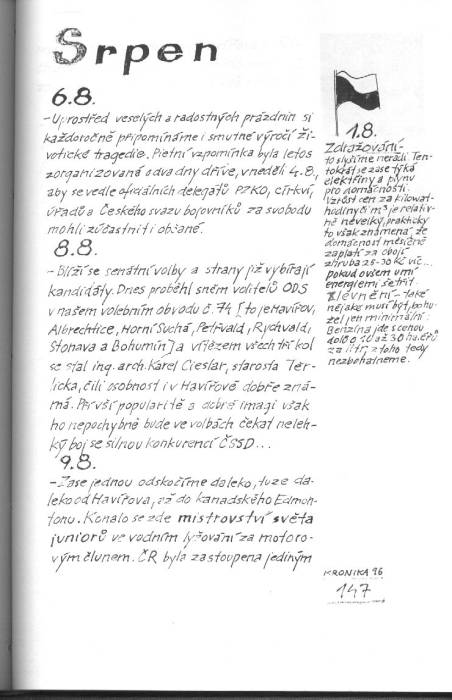 Srpen
6.8.
- Uprostřed veselých a radostných prázdnin si
každoročně připomínáme i smutné výročí ži-
votické tragedie. Pietní vzpomínka byla letos
zorganizovaná o dva dny dříve, v neděli 4.8.,
aby se vedle oficiálních delegátů PZKO, církví,
úřadů a Českého svazu bojovníků za svobodu
mohli zúčastnit i občané.
8.8.
- Blíží se senátní volby a strany již vybírají
kandidáty. Dnes proběhl sněm volitelů ODS
v našem volebním obvodu č. 74 [to je Havířov,
Albrechtice, Horní Suchá, Petřvald, Rychvald,
Stonava a Bohumín] a vítězem všech tří kol
se stal ing. arch. Karel Cieslar, starosta Ter-
licka, čili osobnost i v Havířově dobře zná-
má. Při vší popularitě a dobré imagi však
ho nepochybně bude ve volbách čekat neleh-
ký boj se silnou konkurencí ČSSD...
9.8.
- Zase jednou odskočíme daleko, tuze da-
leko od Havířova, až do kanadského Edmon-
tonu. Konalo se zde mistrovství světa
juniorů ve vodním lyžování za motoro-
vým člunem. ČR byla zastoupena jediným
1.8.
Zdražování -
to slyšíme neradi. Ten-
tokrát se zase týká
elektřiny a plynu
pro domácnosti.
Vzrůst cen za kilowat-
hodiny či m³ je relativ-
ně nevelký, prakticky
to však znamená, že
domácnost měsíčně
zaplatí za obojí
zhruba 25-30 Kč víc...
pokud ovšem umí
energiemi šetřit
Zlevnění - také
nějaké musí být, bohu-
žel jen minimální:
Benzin jde s cenou
dolů o 10 až 30 haléřů
za litr, z toho tedy
nezbohatneme.
KRONIKA 96
147